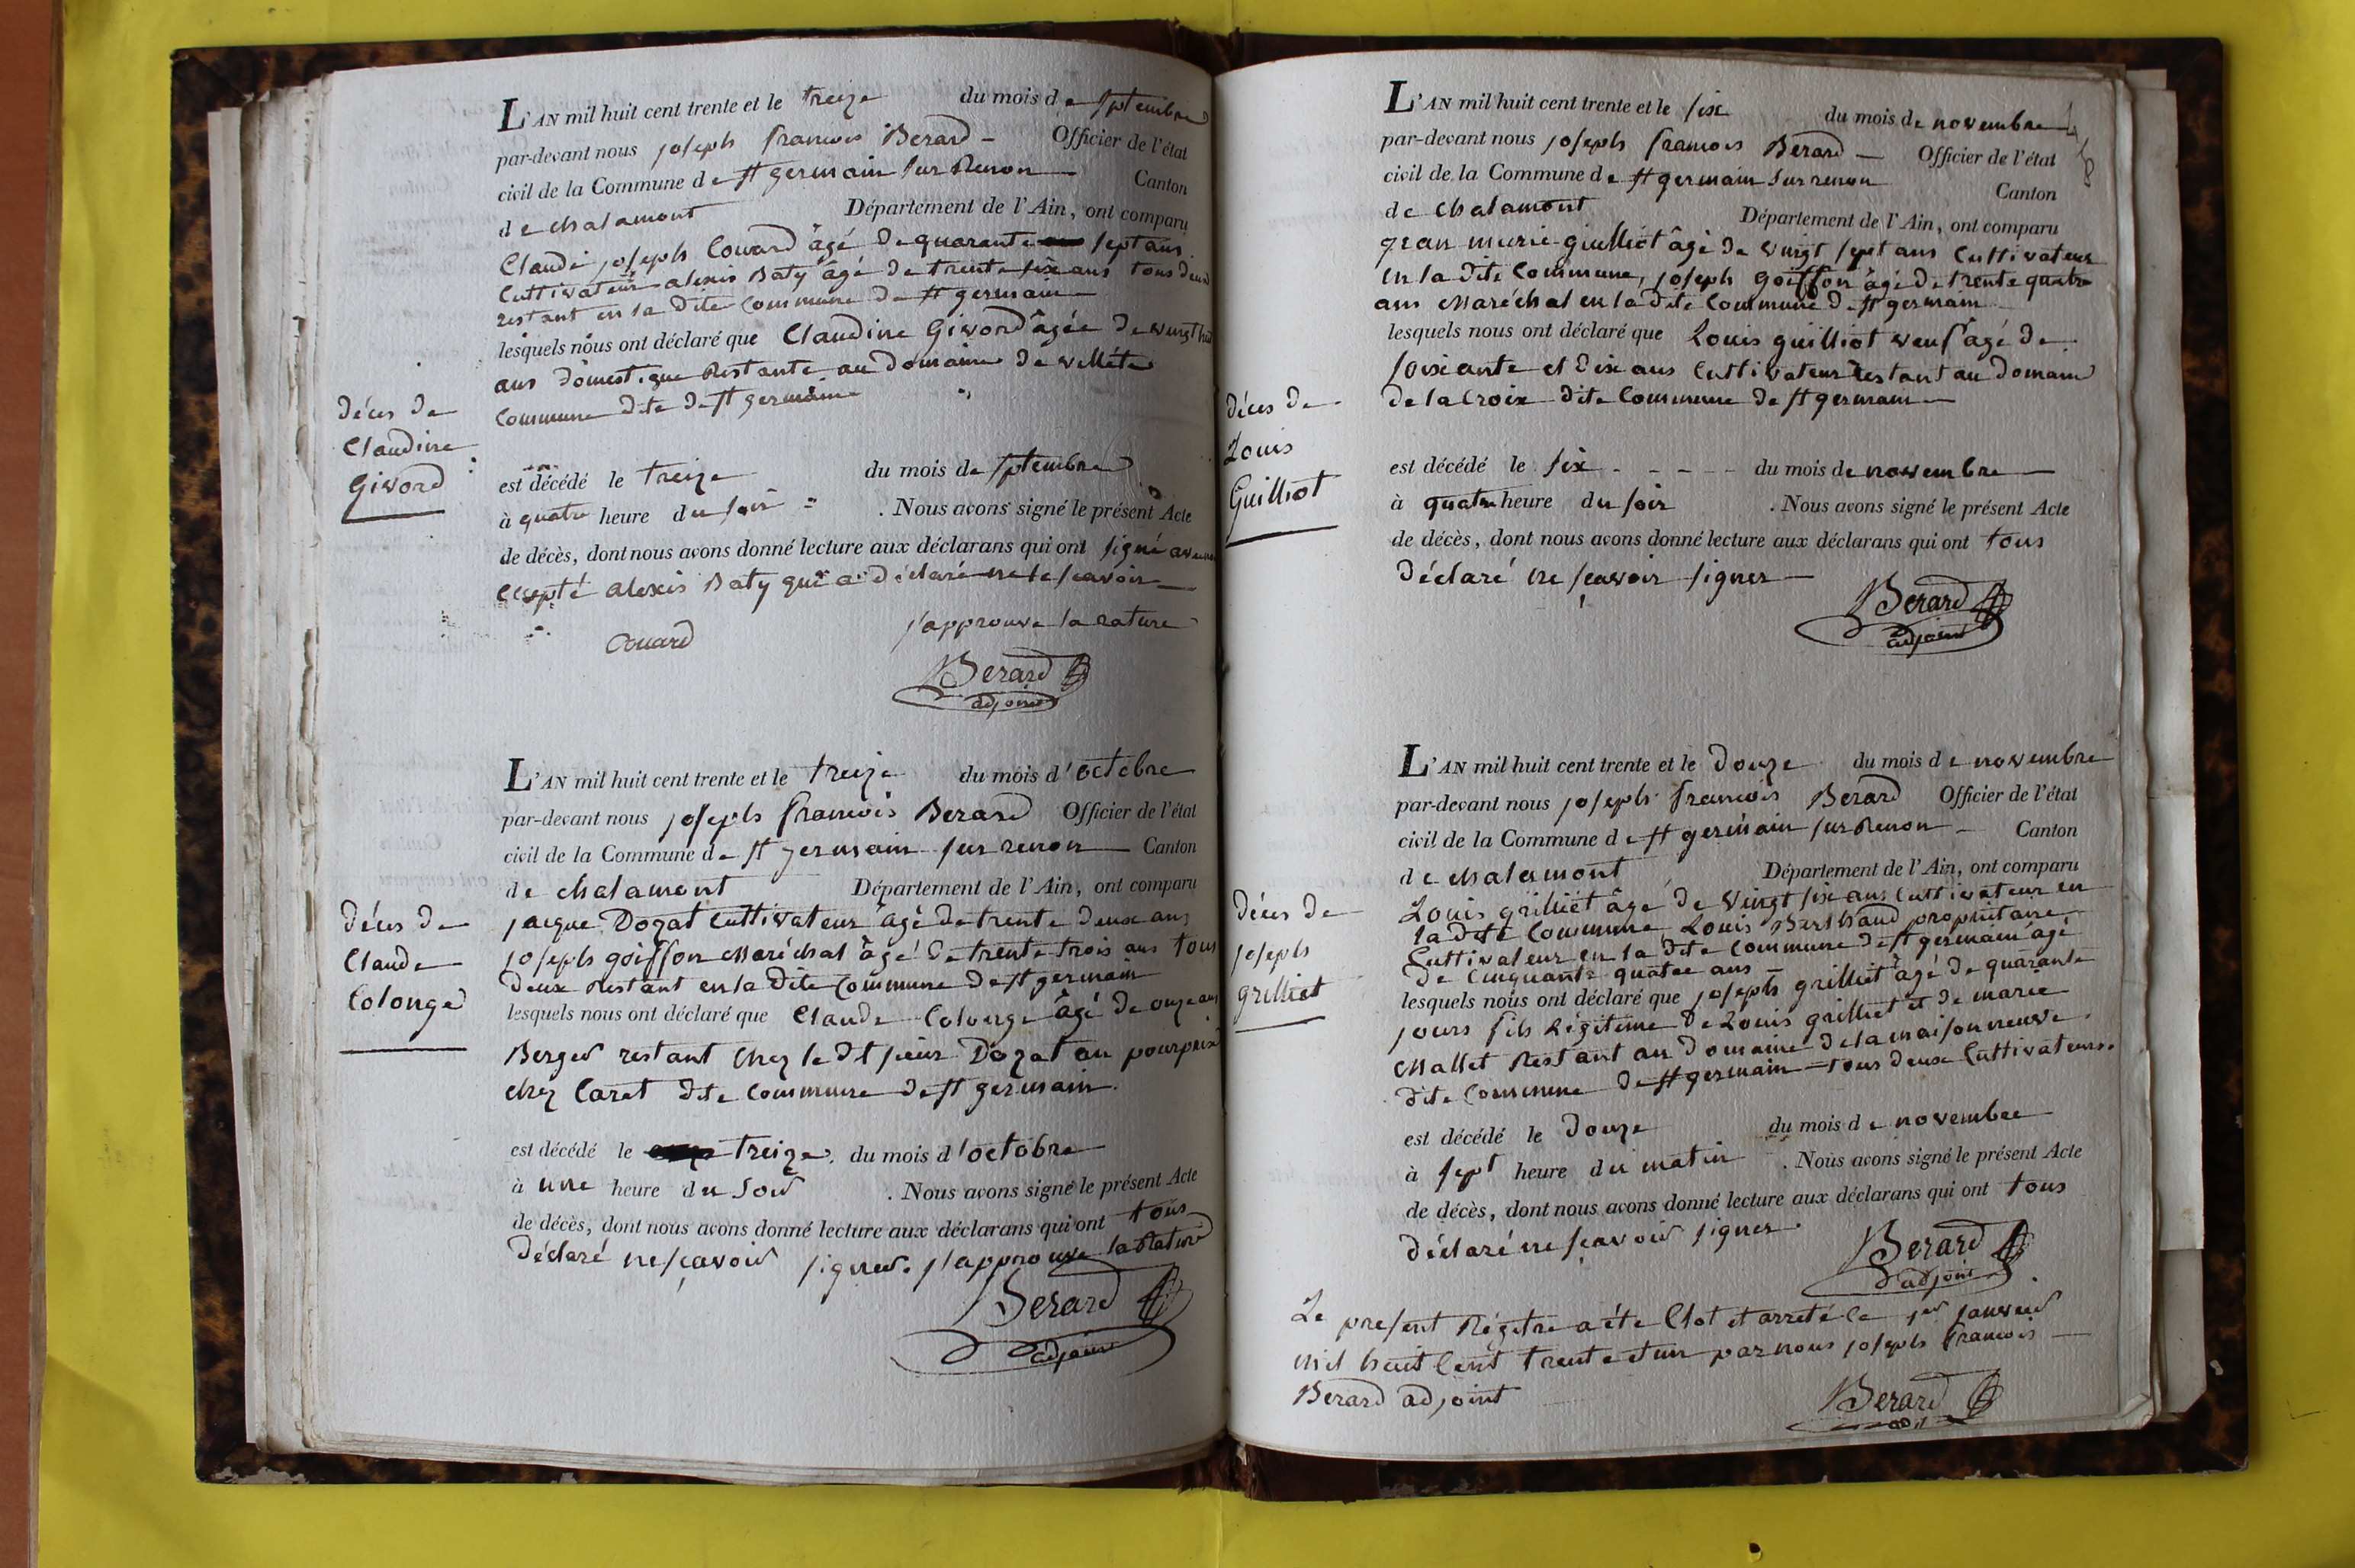 L'AN mil huit cent trente et le treize du mois de septembre
par-devant nous joseph francois Berard Officier de l'état
civil de la Commune de st germain sur Renon Canton
de chalamont Département de l'Ain, ont comparu
Claude joseph Couard âgé de quarante sept ans
Cultivateur alexis Baty âgé de trente six ans tous deux
restant en la dite Commune de st germain
lesquels nous ont déclaré que Claudine Givord âgée de vingt huit
ans domestique Restante au domaine de
Commune dite de st germain
décès de
Claudine
Givord
est décédé le treize du mois de septembre
à quatre heure du soir . Nous avons signé le présent Acte
de décès, dont nous avons donné lecture aux déclarans qui ont signé avec nous
excepté alexis Baty qui a déclaré ne le scavoir
j'approuve la rature
Couard
Berard
adjoint
L'AN mil huit cent trente et le treize du mois d'octobre
par-devant nous joseph francois Berard Officier de l'état
civil de la Commune de st germain sur renon Canton
de chalamont Département de l'Ain, ont comparu
jacque Dozat Cultivateur âgé de trente deux ans
joseph goiffon Maréchal âgé de trente trois ans tous
deux Restant en la dite Commune de st germain
lesquels nous ont déclaré que Claude Colonge âgé de onze ans
Berger restant chez le dt sieur Dozat au pourprix
chez Caret dite Commune de st germain.
décès de
Claude
Colonge
est décédé le treize du mois d'octobre
à une heure du soir . Nous avons signé le présent Acte
de décès, dont nous avons donné lecture aux déclarans qui ont tous
déclaré ne sçavoir signer. j'approuve la Rature
Berard
adjoint
L'AN mil huit cent trente et le six du mois de novembre
par-devant nous joseph francois Berard Officier de l'état
civil de la Commune de st germain sur renon Canton
de Chalamont Département de l'Ain, ont comparu
jean marie guilliot âgé de vingt sept ans Cultivateur
en la dite Commune, joseph goiffon âgé de trente quatre
ans Maréchal en la dite Commune de st germain
lesquels nous ont déclaré que Louis guilliot veuf âgé de
soixante et dix ans Cultivateur restant au domaine
de la Croix dite Commune de st germain
décès de
Louis
Guilliot
est décédé le six du mois de novembre
à quatre heure du soir . Nous avons signé le présent Acte
de décès, dont nous avons donné lecture aux déclarans qui ont tous
déclaré ne sçavoir signer
Berard
adjoint
L'AN mil huit cent trente et le douze du mois de novembre
par-devant nous joseph francois Berard Officier de l'état
civil de la Commune de st germain sur Renon Canton
de chalamont Département de l'Ain, ont comparu
Louis grilliet âgé de vingt six ans Cultivateur en
la dite Commune Louis Berthaud propriétaire
Cultivateur en la dite Commune de st germain âgé
de Cinquante quatre ans
lesquels nous ont déclaré que joseph grilliet âgé de quarante
jours fils Légitime de Louis grilliet et de marie
Mallet Restant au domaine de la maison neuve
dite Commune de st germain tous deux Cultivateurs.
décès de
joseph
grilliet
est décédé le douze du mois de novembre
à sept heure du matin . Nous avons signé le présent Acte
de décès, dont nous avons donné lecture aux déclarans qui ont tous
déclaré ne sçavoir signer.
Berard
adjoint
Le present Régitre a été Clot et arreté le 1er janvier
mil huit Cent trente et un par nous joseph francois
Berard adjoint
Berard